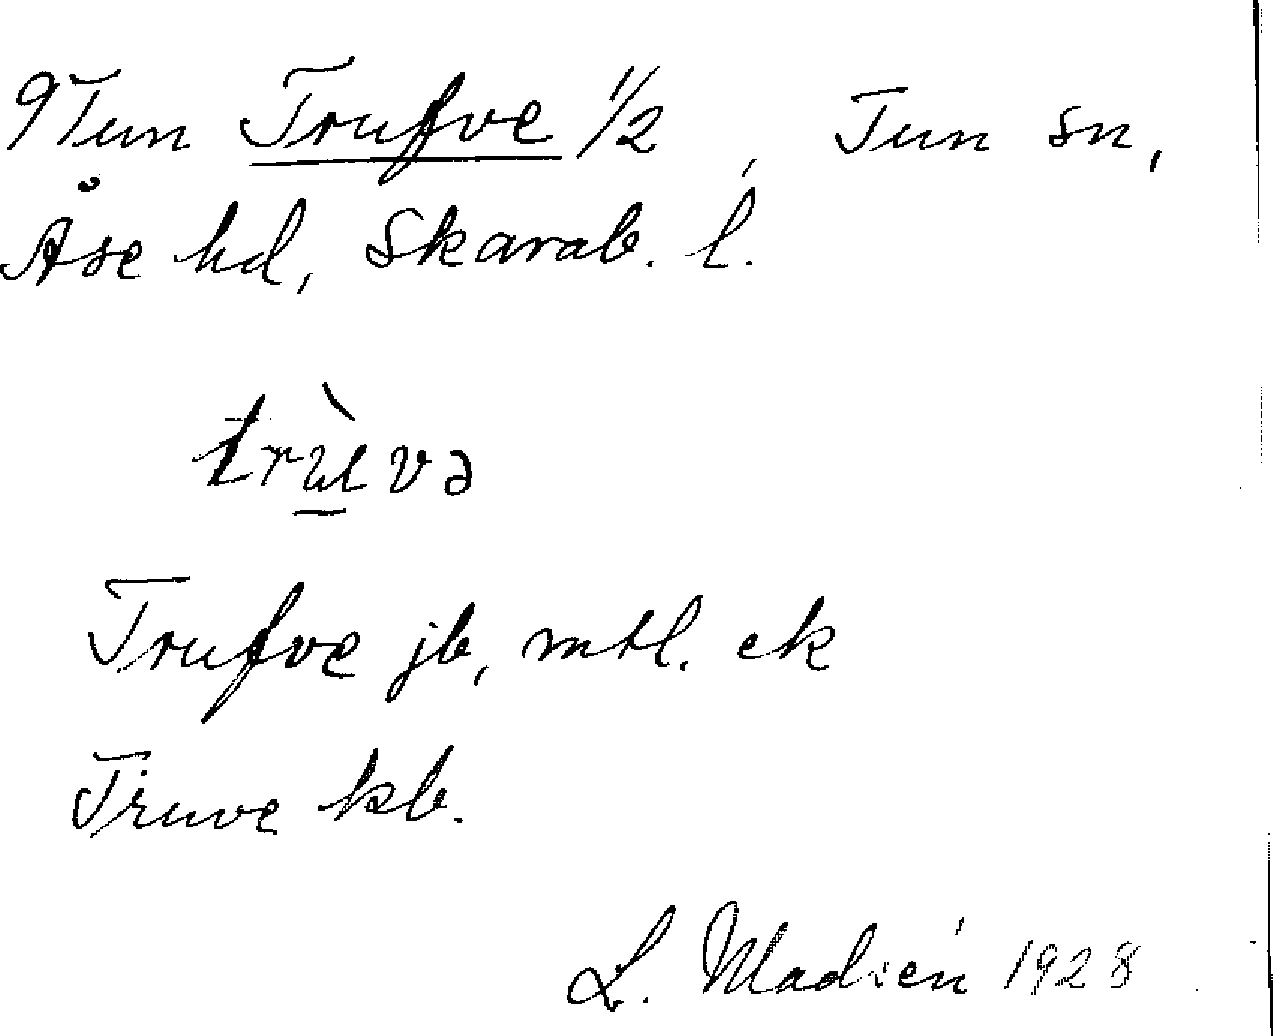 9 Tun Trufve 1/2, Tun sn,
Åse hd, Skarab. l.
trùvə
Trufve jb, mtl. ek
Truve kb.
L. Madsén 1928